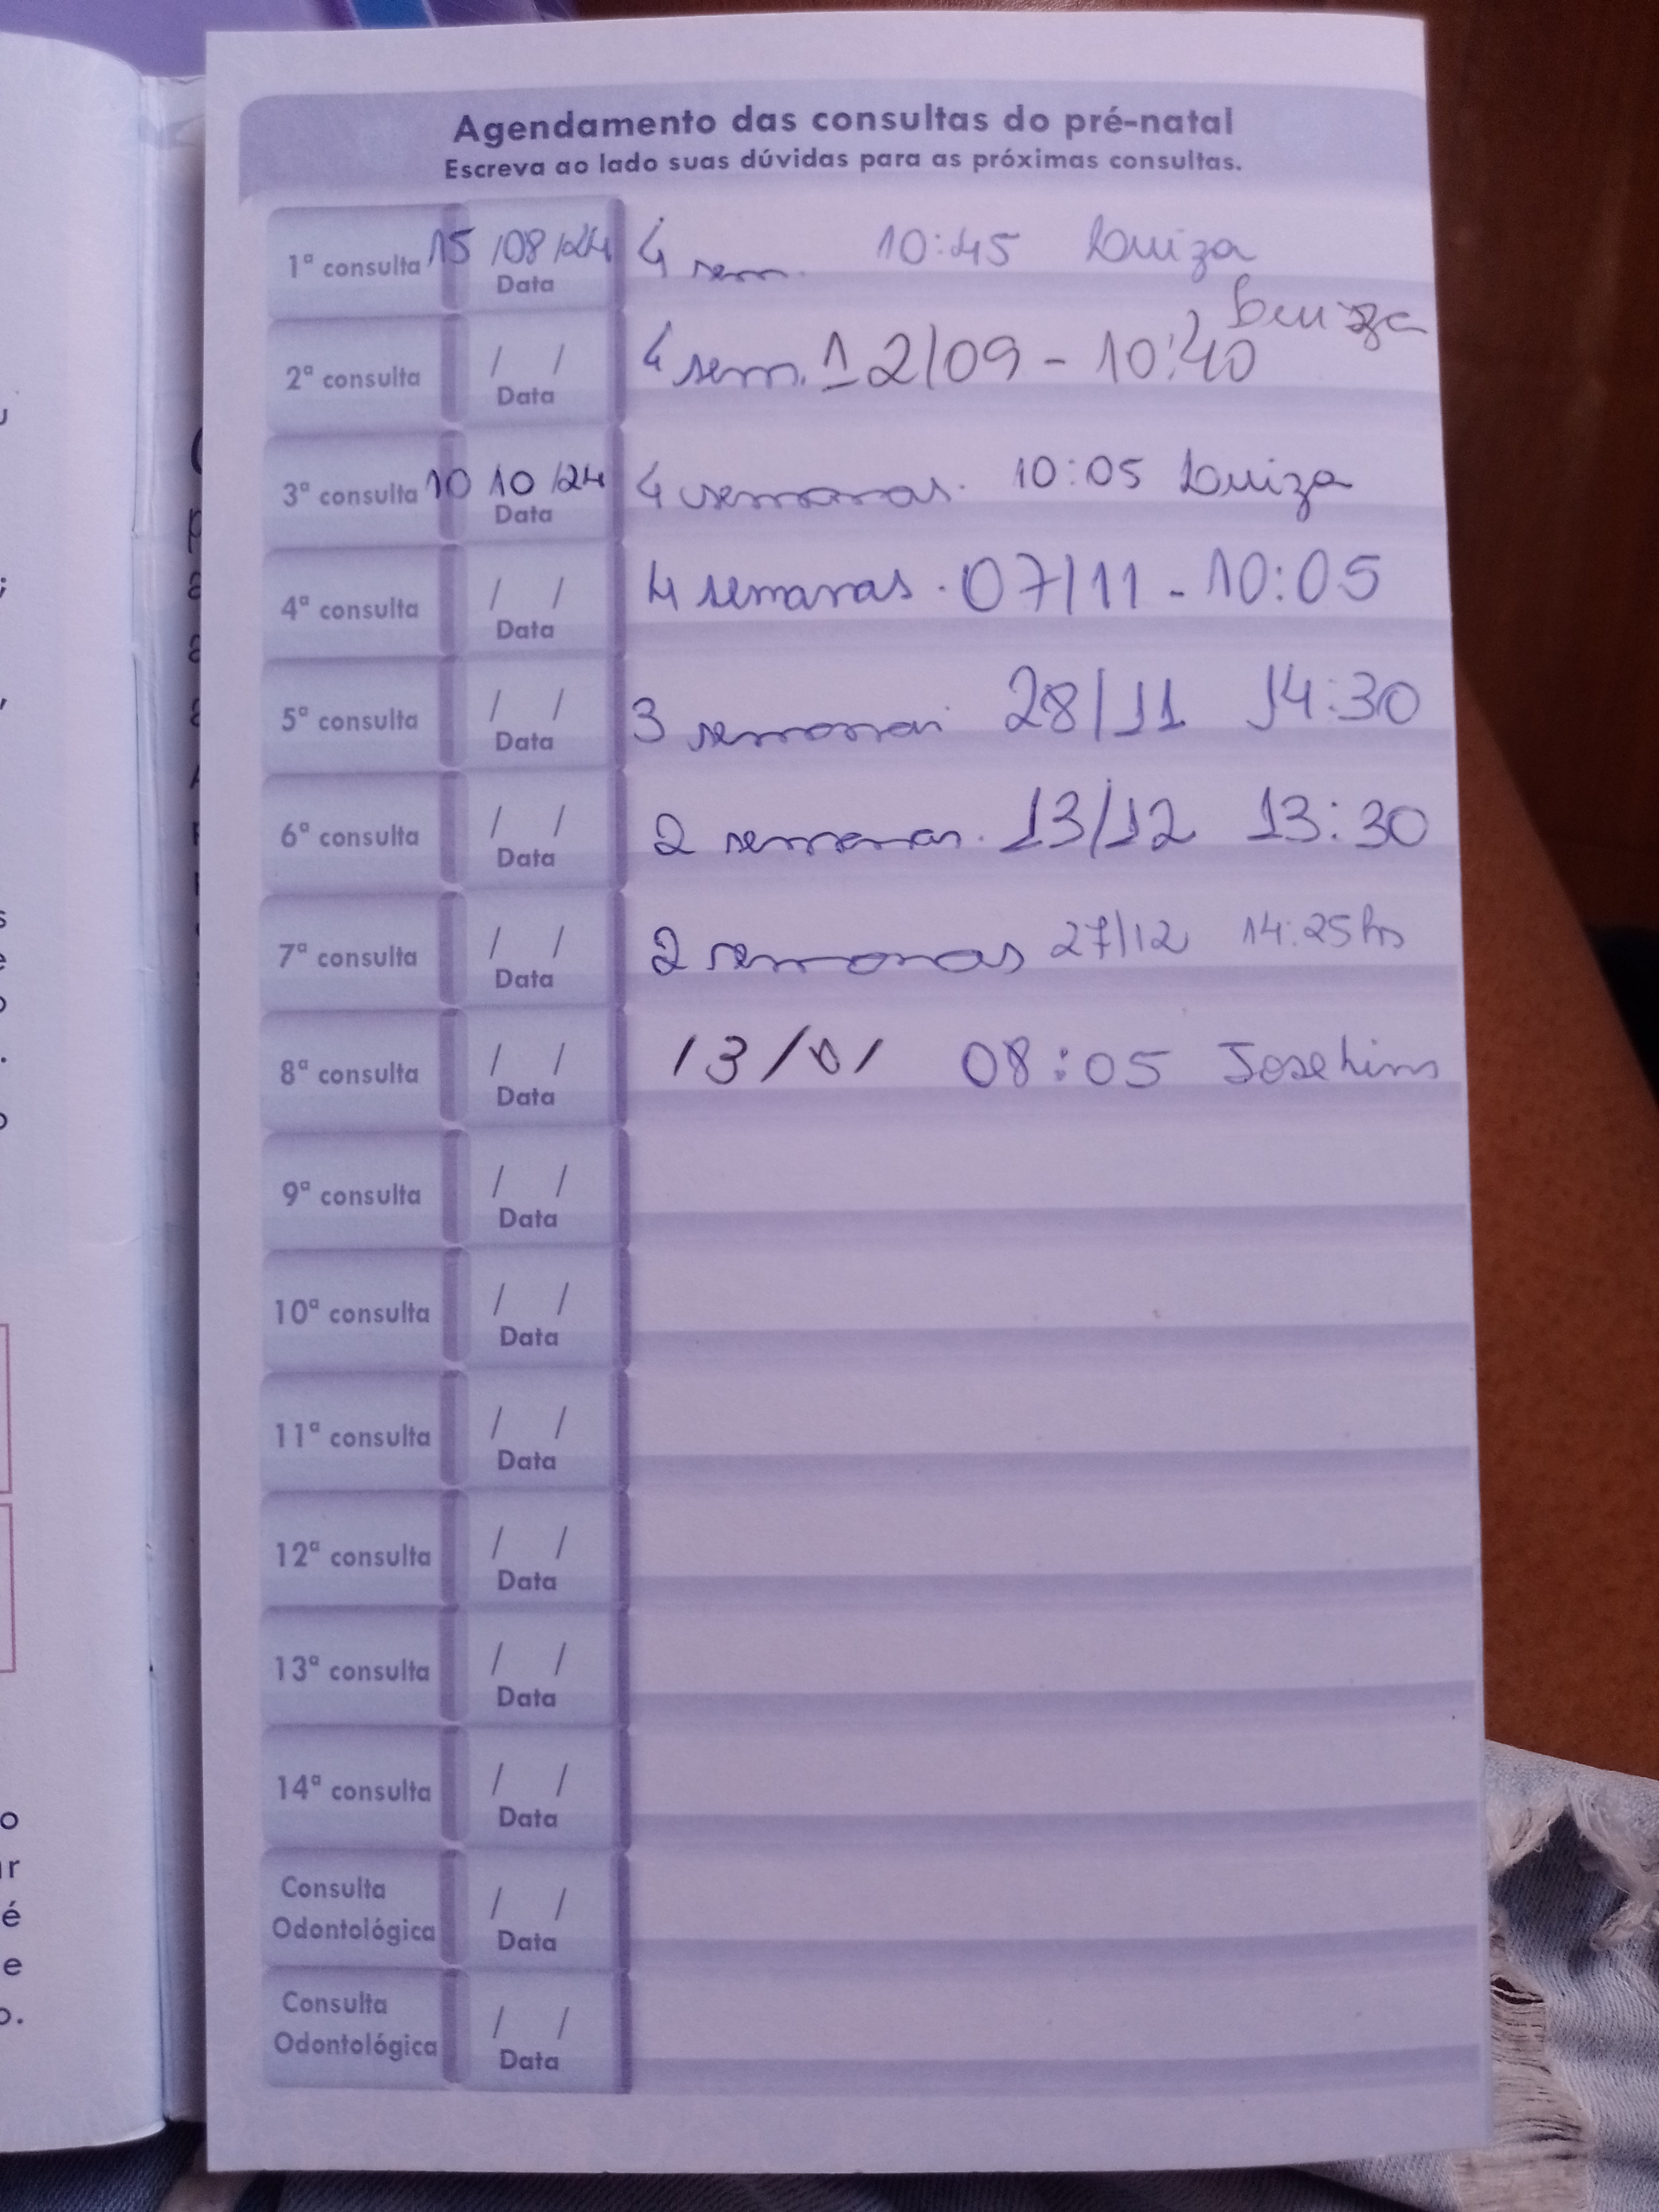 Agendamento das consultas do pré-natal
Escreva ao lado suas dúvidas para as próximas consultas.
1ª consulta 15/08/24 4 sem. 10:45 Luiza
Data
Luiza
2ª consulta / / 4 sem. 12/09 - 10:40
Data
3ª consulta 10 10/24 4 semanas. 10:05 Luiza
Data
4ª consulta / / 4 semanas. 07/11 - 10:05
Data
5ª consulta / / 3 semanas 28/11 14:30
Data
6ª consulta / / 2 semanas. 13/12 13:30
Data
7ª consulta / / 2 semanas 27/12 14:25hs
Data
8ª consulta / / 13/01 08:05
Data
9ª consulta / /
Data
10ª consulta / /
Data
11ª consulta / /
Data
12ª consulta / /
Data
13ª consulta / /
Data
14ª consulta / /
Data
Consulta
Odontológica / /
Data
Consulta
Odontológica / /
Data